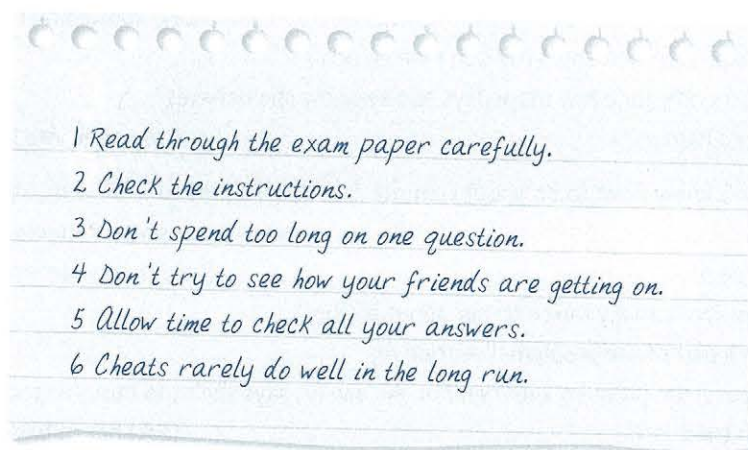 1 Read through the exam paper carefully.
2 Check the instructions.
3 Don't spend too long on one question.
4 Don't try to see how your friends are getting on.
5 Allow time to check all your answers.
6 Cheats rarely do well in the long run.